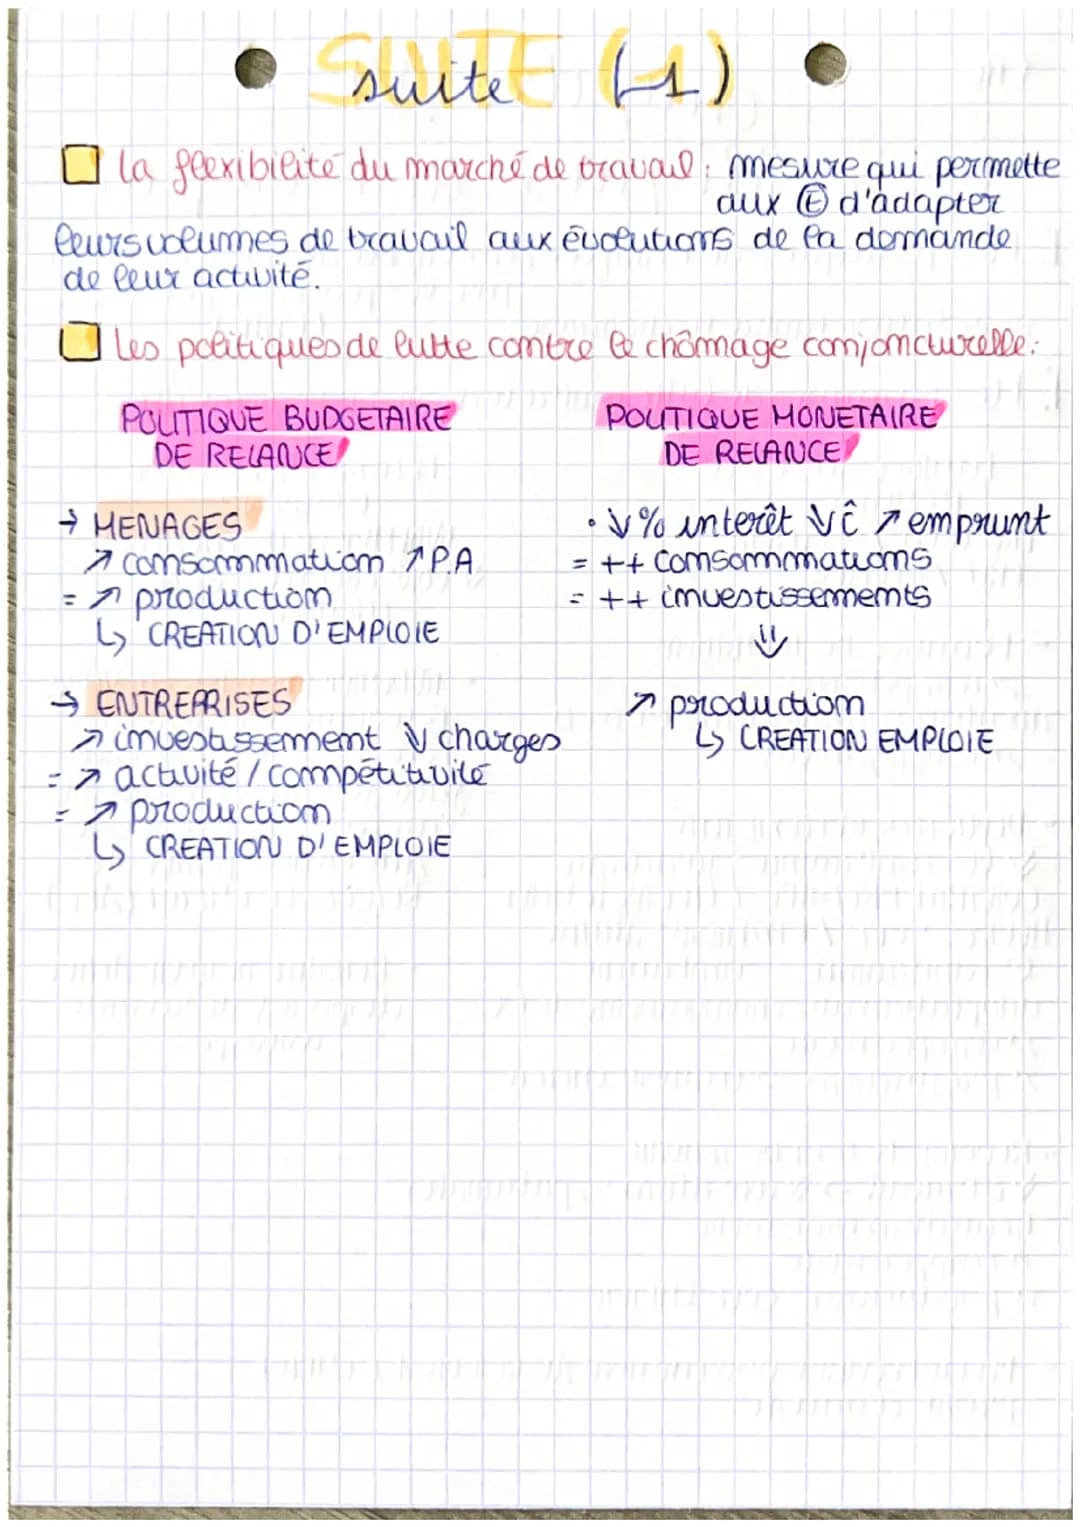 SUITE (1)
suite
La flexibilité du marché de travail : mesure qui permette
aux Ⓔ d'adapter
leurs volumes de travail aux évolutions de la demande
de leur activité.
Les politiques de lutte contre le chômage conjoncturelle :
POLITIQUE BUDGETAIRE
DE RELANCE
→ MENAGES
↗ consommation ↗ P.A
= ↗ production
↳ CREATION D'EMPLOIE
→ ENTREPRISES
↗ investissement ↓ charges
= ↗ activité / compétitivité
= ↗ production
↳ CREATION D'EMPLOIE
POLITIQUE MONETAIRE
DE RELANCE
• ↓ % interêt ↓ Ĉ ↗ emprunt
= ++ consommations
= ++ investissements
⇓
↗ production
↳ CREATION EMPLOIE